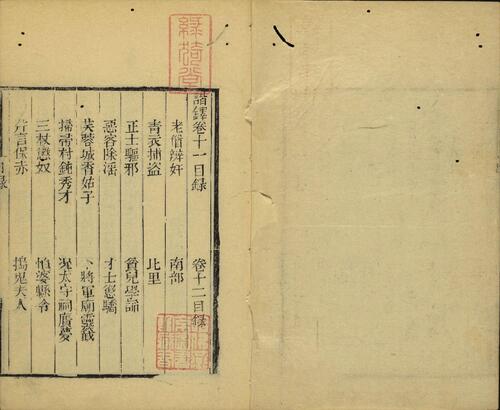 諧鐸卷十一目錄 卷十二目錄
老僧辨奸 南部
青衣捕盜 北里
正士驅邪 貧兒學諂
惡客除淫 才士懲驕
芙蓉城香姑子 卞將軍廟靈籤
掃帚村鈍秀才 況太守祠廣夢
三杖懲奴 怕婆縣令
片言保赤 搗鬼夫人
目錄
綠猗堂